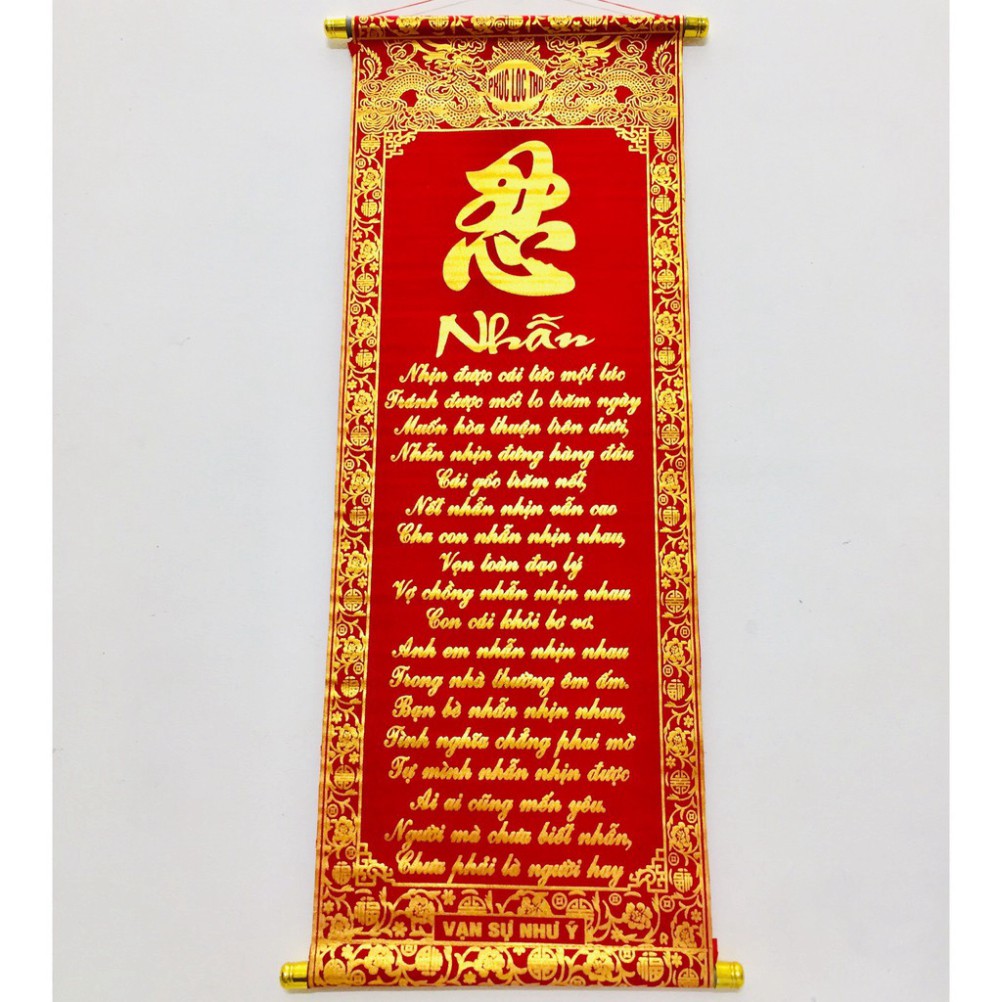 PHÚC LỘC THỌ
忍
Nhẫn
Nhịn được cái tức một lúc
Tránh được mối lo trăm ngày
Muốn hòa thuận trên dưới,
Nhẫn nhịn đứng hàng đầu
Cái gốc trăm nết,
Nết nhẫn nhịn vẫn cao
Cha con nhẫn nhịn nhau,
Vẹn toàn đạo lý
Vợ chồng nhẫn nhịn nhau
Con cái khỏi bơ vơ.
Anh em nhẫn nhịn nhau
Trong nhà thường êm ấm.
Bạn bè nhẫn nhịn nhau,
Tình nghĩa chẳng phai mờ
Tự mình nhẫn nhịn được
Ai ai cũng mến yêu.
Người mà chưa biết nhẫn,
Chưa phải là người hay
VẠN SỰ NHƯ Ý